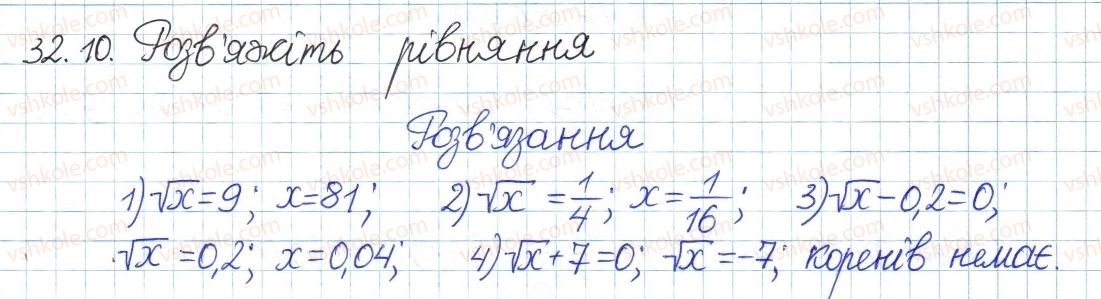 32.10. Розв'яжіть рівняння
Розв'язання
1) √x = 9; x = 81; 2) √x = 1/4; x = 1/16; 3) √x - 0,2 = 0;
√x = 0,2; x = 0,04; 4) √x + 7 = 0; √x = -7; коренів немає.